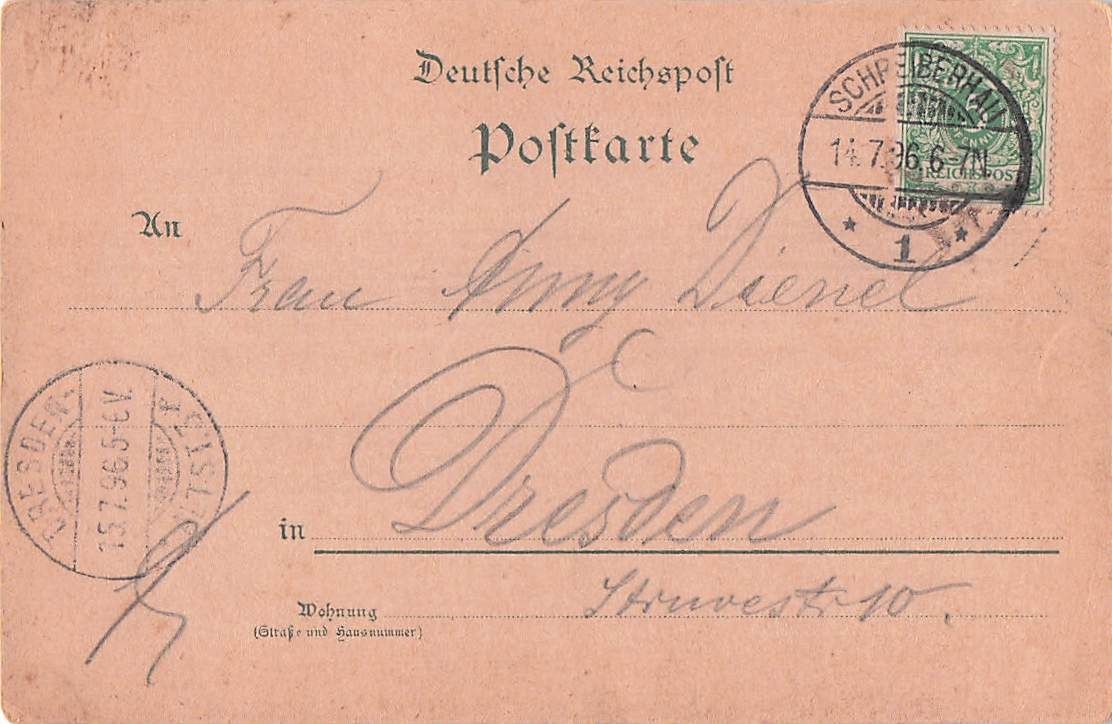 Deutsche Reichspost
Postkarte
SCHREIBERHAU
14.7.96.6-7N.
* 1 *
REICHSPOST
An
Frau Anny Dienel
Dresden
in
Wohnung Struvestr 10.
(Straße und Hausnummer)
DRESDEN-
15.7.96.5-6V.